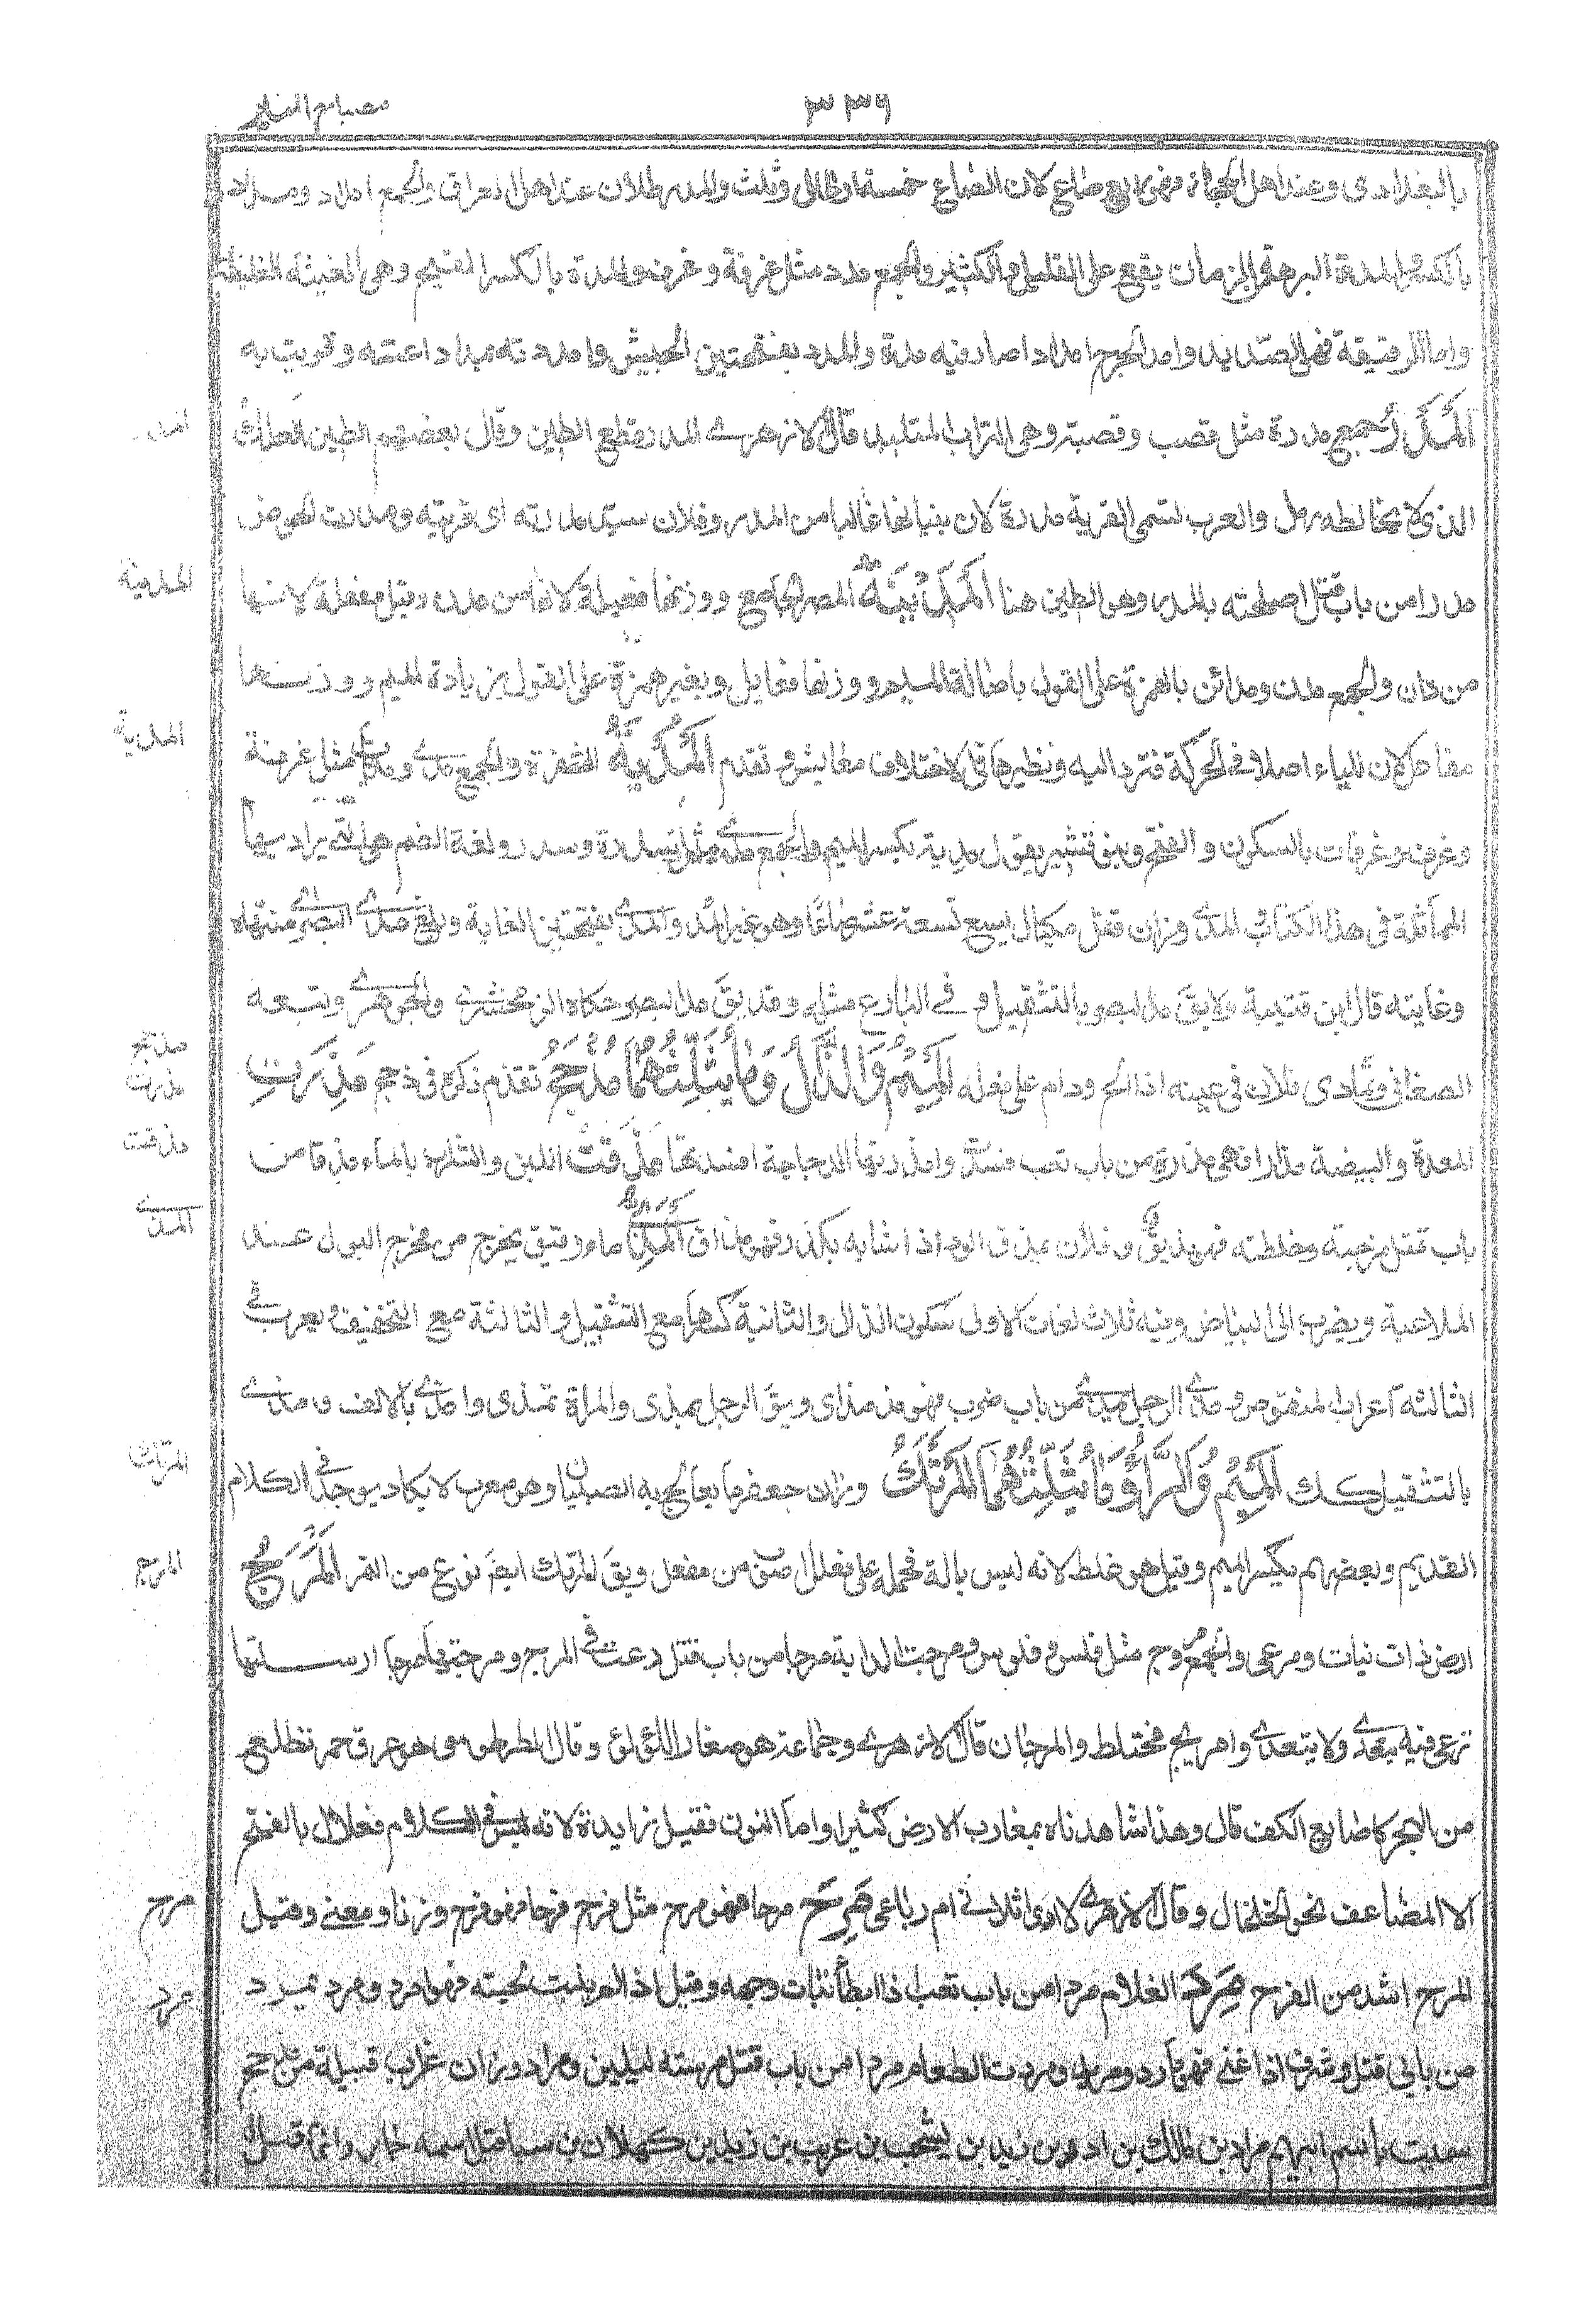 مصباح المنير
٣٣٦
بالبغدادي وعند اهل الحجاز فهو ربع صاع لان الصاع خمسة ارطال وثلث والمد رطلان عند اهل العراق والجمع امداد ومداد
بالكسر والمدة البرهة من الزمان يقع على القليل والكثير والجمع مدد مثل غرفة وغرف والمدة بالكسر القيح وهى الغيثة الغليظة
واما الرقيقة فهى الصديد وامد الجرح امدادا صار فيه مدة والمدد بفتحتين الجيش وامددته بمدد اعنته وقويت به
المدر جمع مدرة مثل قصب وقصبة وهى التراب المتلبد قال الازهرى المدر قطع الطين وقال بعضهم الطين العلك
الذى لا يخالطه رمل والعرب تسمى القرية مدرة لان بنيانها غالبا من المدر وفلان سيد مدرته اى قريته ومدرت الحوض
مدرا من باب قتل اصلحته بالمدر وهو الطين هنا المدينة المصر الجامع ووزنها فعيلة لانها من مدن وقيل مفعلة لانها
من دان والجمع مدن ومدائن بالهمزة على القول باصالة الميم ووزنها فعايل وبغير همزة على القول بزيادة الميم ووزنها
مفاعل لان للياء اصلا فى الحركة فترد اليه ونظيرها فى الاختلاف معايش وتقدم المدية الشفرة والجمع مدى ومديات مثل غرفة
وغرف وغرفات بالسكون والفتح وبنو قشير يقول مدية بكسر الميم والجمع مدى مثل سدرة وسدر ولغة الضم هى التى يراد بها
المماثلة فى هذا الكتاب المدى وزان قفل مكيال يسع تسعة عشر صاعا وهو غير المد والمدى بفتحتين الغاية وبلغ مدى البصر منتهاه
وغايته قال ابن قتيبة ولا يق مد البصر بالتثقيل و فى البارع مثله وقد يق مد البصر حكاه الزمخشرى والجوهرى وتبعه
الصغانى وتمادى فلان فى غيه اذا الح ودام على فعله الميم والذال وما يثلثهما مذحج تقدم ذكره فى ذحج مذرت
المعدة والبيضة مذرا فهى مذرة من باب تعب فسدت وامذرتها الدجاجة افسدتها مذقت اللبن والشراب بالماء مذقا من
باب قتل مزجته وخلطته فهو مذيق وفلان يمذق الود اذا شابه بكدر فهو مذاق المذى ماء رقيق يخرج من مخرج البول عند
الملاعبة ويضرب الى البياض وفيه ثلاث لغات الاولى سكون الذال والثانية كسرها مع التثقيل والثالثة مع التخفيف ويعرب فى
الثالثة اعراب المنقوص ومذى الرجل يمذى من باب ضرب فهو مذاى ويق الرجل يمذى والمراة تمذى وامذى بالالف ومذى
بالتثقيل كك الميم والراء وما يثلثهما المرتك وزان جعفر ما يعالج به الصبيان وهو معرب لا يكاد يوجد فى الكلام
القديم وبعضهم بكسر الميم وقيل هو غلط لانه ليس بالة فحمله على فعلل اصوب من مفعل ويق المرتك ايضا نوع من التمر المرج
ارض ذات نبات ومرعى والجمع مروج مثل فلس وفلوس ومرجت الدابة مرجا من باب قتل رعت فى المرج ومرجتها مرجا ارسلتها
ترعى فيه يتعدى ولا يتعدى وامر مريج مختلط والمرجان قال الازهرى وجماعة هو صغار اللؤلؤ وقال الطرطوسى هو عروق حمر تطلع
من البحر كاصابع الكف قال وهذا شاهدناه بمغارب الارض كثيرا واما النون فقيل زايدة لانه ليس فى الكلام فعلال بالفتح
الا المضاعف نحو الخلخال وقال الازهرى لا ادرى اثلاثى ام رباعى مرح مرحا فهو مرح مثل فرح فرحا فهو فرح وزنا ومعنى وقيل
المرح اشد من الفرح مرد الغلام مردا من باب تعب اذا ابطأ نبات وجهه وقيل اذا لم ينبت لحيته فهو امرد ومرد يمرد
من بابى قتل وشرف اذا عتى فهو مارد ومريد ومردت الطعام مردا من باب قتل مرسته ليلين ومراد وزان غراب قبيلة من مذحج
سميت باسم ابيهم مراد بن مالك بن ادد بن زيد بن يشجب بن عريب بن زيد بن كهلان بن سبا قيل اسمه يحابر وانما قيل
المدر
المدينة
المدية
مذحج
مذرت
مذقت
المذى
المرتك
المرج
مرح
مرد